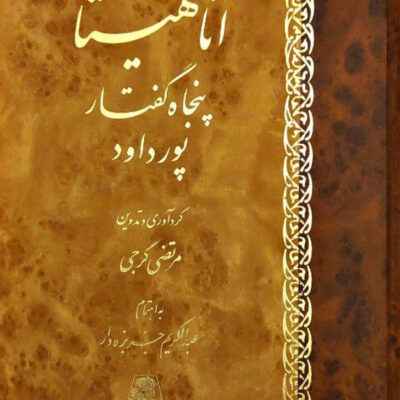 آناهیتا
پنجاه گفتار
پورداود
گردآوری و تدوین
مرتضی گرجی
به اهتمام
عبدالکریم جربزه‌دار